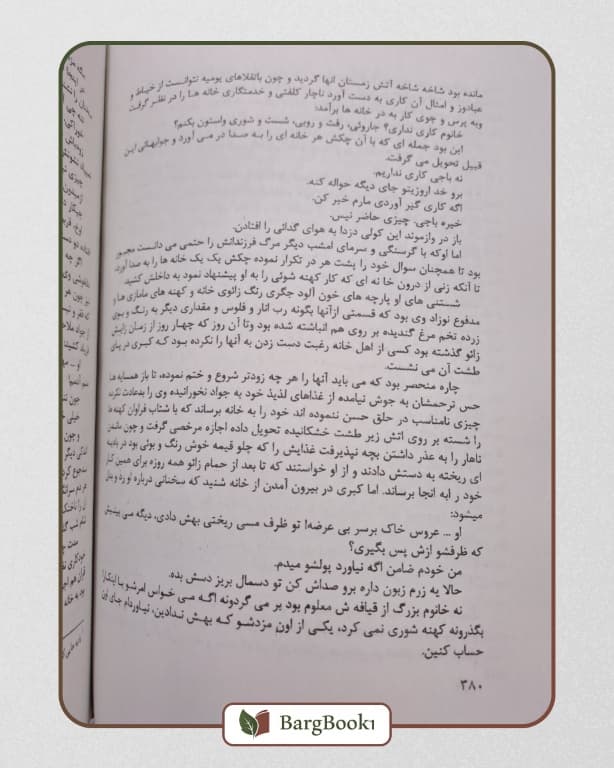 مانده بود شاخه شاخه آتش زمستان آنها گردید و چون باتقلاهای یومیه نتوانست از خیاط و
عبادوز و امثال آن کاری به دست آورد ناچار کلفتی و خدمتگاری خانه ها را در نظر گرفت
وبه پرس و جوی کار به در خانه ها برآمد:
خانوم کاری نداری؟ جاروئی، رفت و روبی، شست و شوری واستون بکنم؟
این بود جمله ای که با آن چکش هر خانه ای را به صدا در می آورد و جوابهائی این
قبیل تحویل می گرفت.
نه باجی کاری نداریم.
برو خد اروزیتو جای دیگه حواله کنه.
اگه کاری گیر آوردی مارم خبر کن.
خیره باجی. چیزی حاضر نیس.
باز در وازموند این کولی دزدا به هوای گدائی را افتادن.
اما اوکه با گرسنگی و سرمای امشب دیگر مرگ فرزندانش را حتمی می دانست مجبور
بود تا همچنان سوال خود را پشت هر در تکرار نموده چکش یک یک خانه ها را به صدا آورد،
تا آنکه زنی از درون خا نه ای که کار کهنه شوئی را به او پیشنهاد نمود به داخلش کشید.
شستنی های او پارچه های خون آلود جگری رنگ زائوی خانه و کهنه های مامازی ها و
مدفوع نوزاد وی بود که قسمتی ازآنها بگونه رب انار و فلوس و مقداری دیگر به رنگ و بوی
زرده تخم مرغ گندیده بر روی هم انباشته شده بود وتا آن روز که چهار روز از زمان زایش
زائو گذشته بود کسی از اهل خانه رغبت دست زدن به آنها را نکرده بود که کبری در پای
طشت آن می نشست.
چاره منحصر بود که می باید آنها را هر چه زودتر شروع و ختم نموده، تا باز همسایه ها
حس ترحمشان به جوش نیامده از غذاهای لذیذ خود به جواد نخورانیده وی را بدعادت نکرده
چیزی نامناسب در حلق حسن ننموده اند خود را به خانه برساند که با شتاب فراوان کهنه ها
را شسته بر روی آتش زیر طشت خشکانیده تحویل داده اجازه مرخصی گرفت و چون ماندن
ناهار را به عذر داشتن بچه نپذیرفت غذایش را که چلو قیمه خوش رنگ و بوئی بود در بادیه
ای ریخته به دستش دادند و از او خواستند که تا بعد از حمام زائو همه روزه برای همین کار
خود ر ابه انجا برساند. اما کبری در بیرون آمدن از خانه شنید که سخنانی درباره او رد و بدل
میشود:
او ... عروس خاک برسر بی عرضه! تو ظرف مسی ریختی بهش دادی، دیگه می بینیش
که ظرفشو ازش پس بگیری؟
من خودم ضامن اگه نیاورد پولشو میدم.
حالا یه زرم زبون داره برو صداش کن تو دسمال بریز دسش بده.
نه خانوم بزرگ از قیافه ش معلوم بود بر می گردونه اگه می خواس امرشو با اینکارا
بگذرونه کهنه شوری نمی کرد، یکی از اون مزدشو که بهش ندادین، نیاوردام جای اون
حساب کنین.
۳۸۰
BargBook1